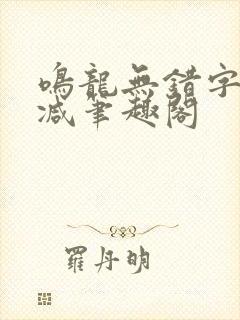 鳴龍無錯字
減筆趣閣
羅丹明